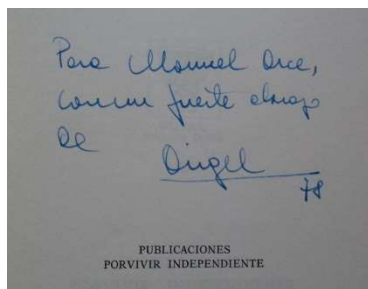 Para Manuel Arce,
con un fuerte abrazo
de
Angel
78
PUBLICACIONES
PORVIVIR INDEPENDIENTE